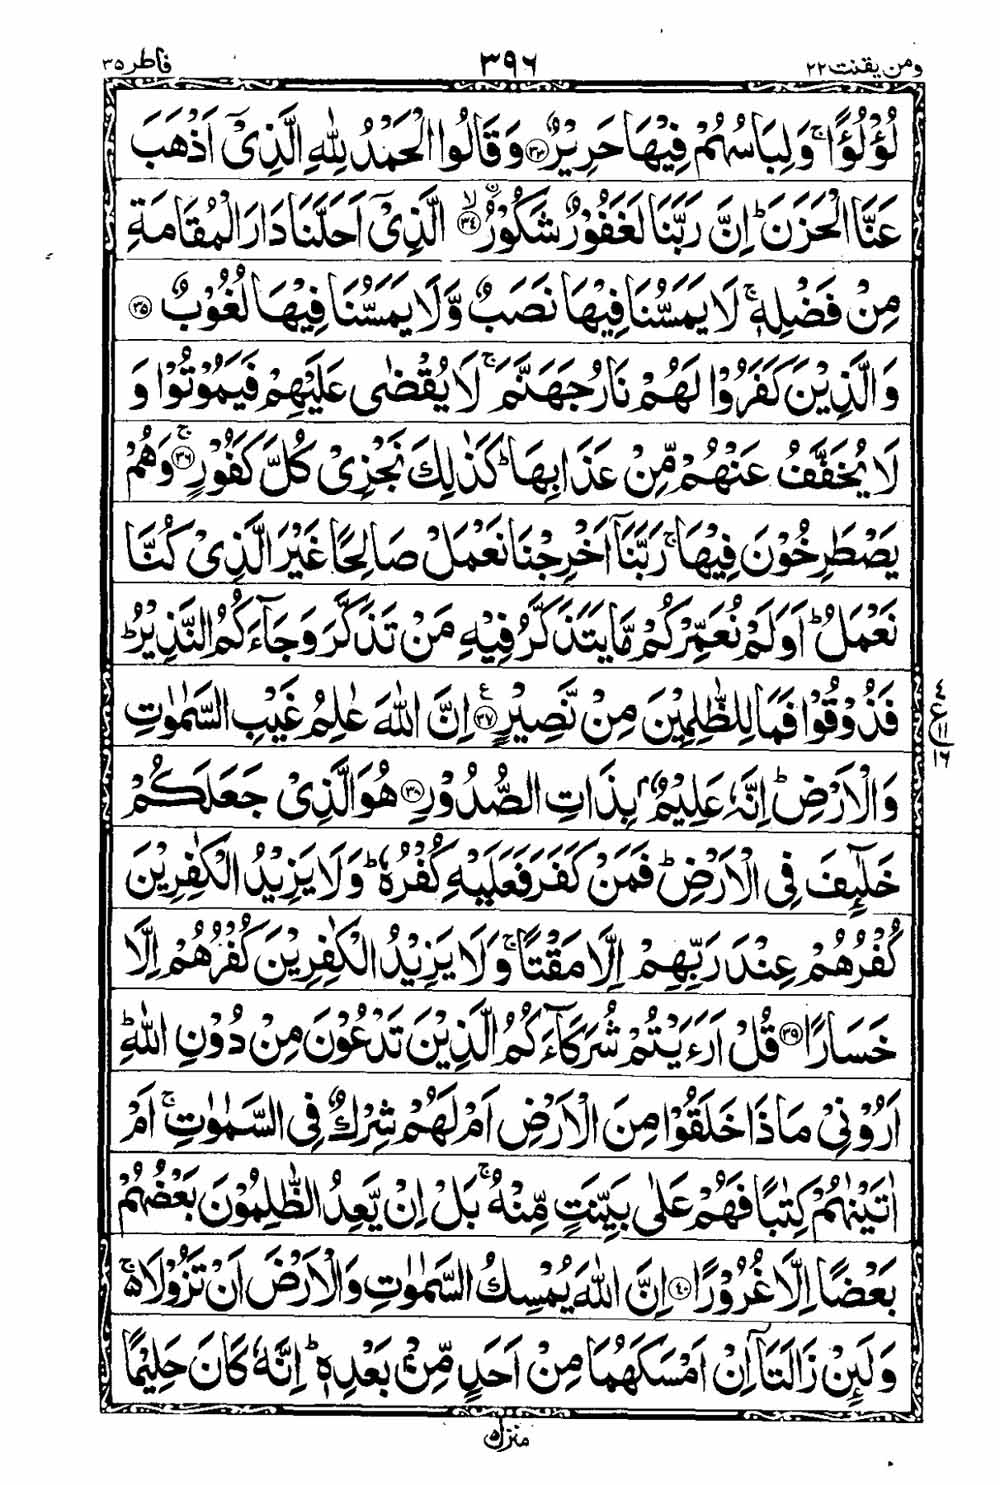 ومن يقنت ٢٢ ٣٩٦ فاطر ٣٥
لُؤْلُؤًا ۚ وَلِبَاسُهُمْ فِيْهَا حَرِيْرٌ ﴿۳۳﴾ وَقَالُوا الْحَمْدُ لِلّٰهِ الَّذِيْۤ اَذْهَبَ
عَنَّا الْحَزَنَ ؕ اِنَّ رَبَّنَا لَغَفُوْرٌ شَكُوْرُ ۙ﴿۳٤﴾ الَّذِيْۤ اَحَلَّنَا دَارَ الْمُقَامَةِ
مِنْ فَضْلِهٖ ۚ لَا يَمَسُّنَا فِيْهَا نَصَبٌ وَّلَا يَمَسُّنَا فِيْهَا لُغُوْبٌ ﴿۳٥﴾
وَالَّذِيْنَ كَفَرُوْا لَهُمْ نَارُ جَهَنَّمَ ۚ لَا يُقْضٰى عَلَيْهِمْ فَيَمُوْتُوْا وَ
لَا يُخَفَّفُ عَنْهُمْ مِّنْ عَذَابِهَا ؕ كَذٰلِكَ نَجْزِيْ كُلَّ كَفُوْرٍ ۚ﴿۳٦﴾ وَهُمْ
يَصْطَرِخُوْنَ فِيْهَا ۚ رَبَّنَاۤ اَخْرِجْنَا نَعْمَلْ صَالِحًا غَيْرَ الَّذِيْ كُنَّا
نَعْمَلُ ؕ اَوَلَمْ نُعَمِّرْكُمْ مَّا يَتَذَكَّرُ فِيْهِ مَنْ تَذَكَّرَ وَجَآءَكُمُ النَّذِيْرُ ؕ
فَذُوْقُوْا فَمَا لِلظّٰلِمِيْنَ مِنْ نَّصِيْرٍ ﴿۳٧﴾ ع اِنَّ اللّٰهَ عٰلِمُ غَيْبِ السَّمٰوٰتِ
وَالْاَرْضِ ؕ اِنَّهٗ عَلِيْمٌۢ بِذَاتِ الصُّدُوْرِ ﴿۳٨﴾ هُوَ الَّذِيْ جَعَلَكُمْ
خَلٰٓئِفَ فِي الْاَرْضِ ؕ فَمَنْ كَفَرَ فَعَلَيْهِ كُفْرُهٗ ؕ وَلَا يَزِيْدُ الْكٰفِرِيْنَ
كُفْرُهُمْ عِنْدَ رَبِّهِمْ اِلَّا مَقْتًا ۚ وَلَا يَزِيْدُ الْكٰفِرِيْنَ كُفْرُهُمْ اِلَّا
خَسَارًا ﴿۳٩﴾ قُلْ اَرَءَيْتُمْ شُرَكَآءَكُمُ الَّذِيْنَ تَدْعُوْنَ مِنْ دُوْنِ اللّٰهِ ؕ
اَرُوْنِيْ مَاذَا خَلَقُوْا مِنَ الْاَرْضِ اَمْ لَهُمْ شِرْكٌ فِي السَّمٰوٰتِ ۚ اَمْ
اٰتَيْنٰهُمْ كِتٰبًا فَهُمْ عَلٰى بَيِّنَتٍ مِّنْهُ ۚ بَلْ اِنْ يَّعِدُ الظّٰلِمُوْنَ بَعْضُهُمْ
بَعْضًا اِلَّا غُرُوْرًا ﴿٤٠﴾ اِنَّ اللّٰهَ يُمْسِكُ السَّمٰوٰتِ وَالْاَرْضَ اَنْ تَزُوْلَا ۚ٥
وَلَئِنْ زَالَتَاۤ اِنْ اَمْسَكَهُمَا مِنْ اَحَدٍ مِّنْۢ بَعْدِهٖ ؕ اِنَّهٗ كَانَ حَلِيْمًا
٤
ع ١١
١٦
منزل ٥